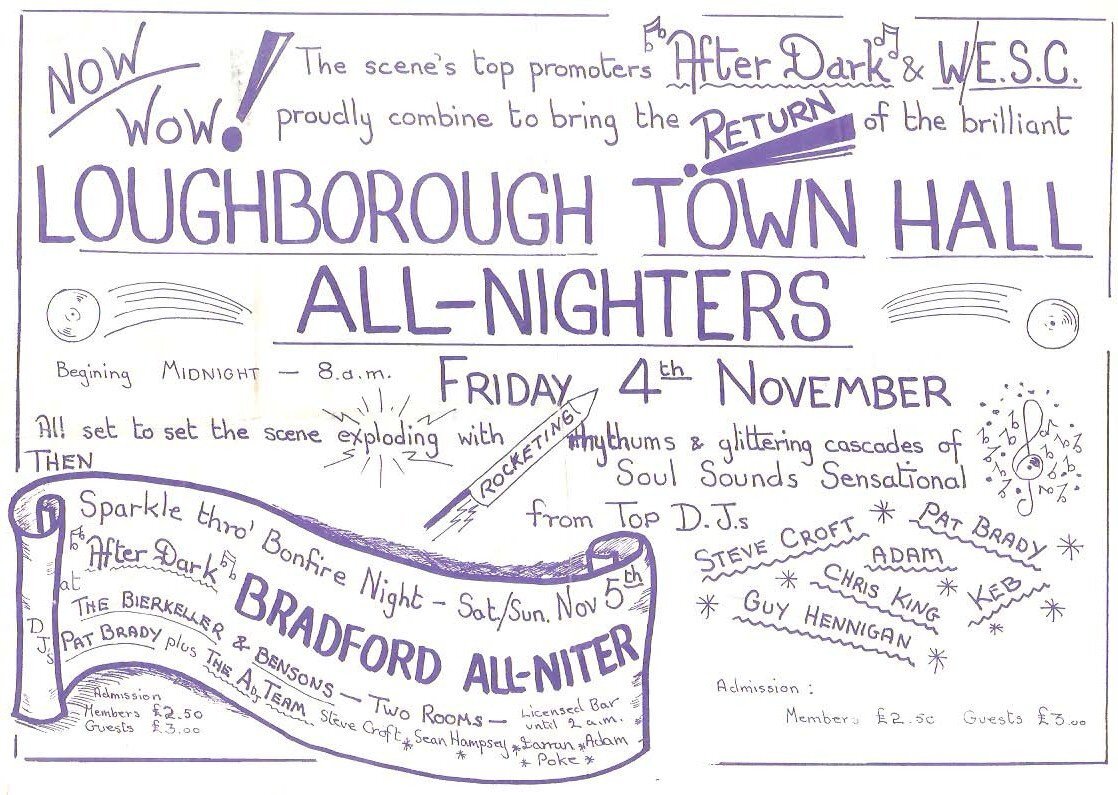 NOW WOW!
The scene's top promoters After Dark & W/E.S.C.
proudly combine to bring the RETURN of the brilliant
LOUGHBOROUGH TOWN HALL
ALL-NIGHTERS
Begining MIDNIGHT - 8.a.m.
FRIDAY 4th NOVEMBER
All set to set the scene exploding with ROCKETING Rhythums & glittering cascades of
Soul Sounds Sensational
from TOP D.J.s
STEVE CROFT * PAT BRADY *
ADAM
* CHRIS KING * KEB *
* GUY HENNIGAN *
Admission :
Members £2.50 Guests £3.00
THEN
Sparkle thro' Bonfire Night - Sat/Sun. Nov 5th
After Dark BRADFORD ALL-NITER
at THE BIERKELLER & BENSONS - TWO ROOMS - Licensed Bar
until 2 a.m.
D.J.s PAT BRADY plus THE A.D. TEAM Steve Croft * Sean Hampsey * Darran * Adam
* Poke *
Admission
Members £2.50
Guests £3.00